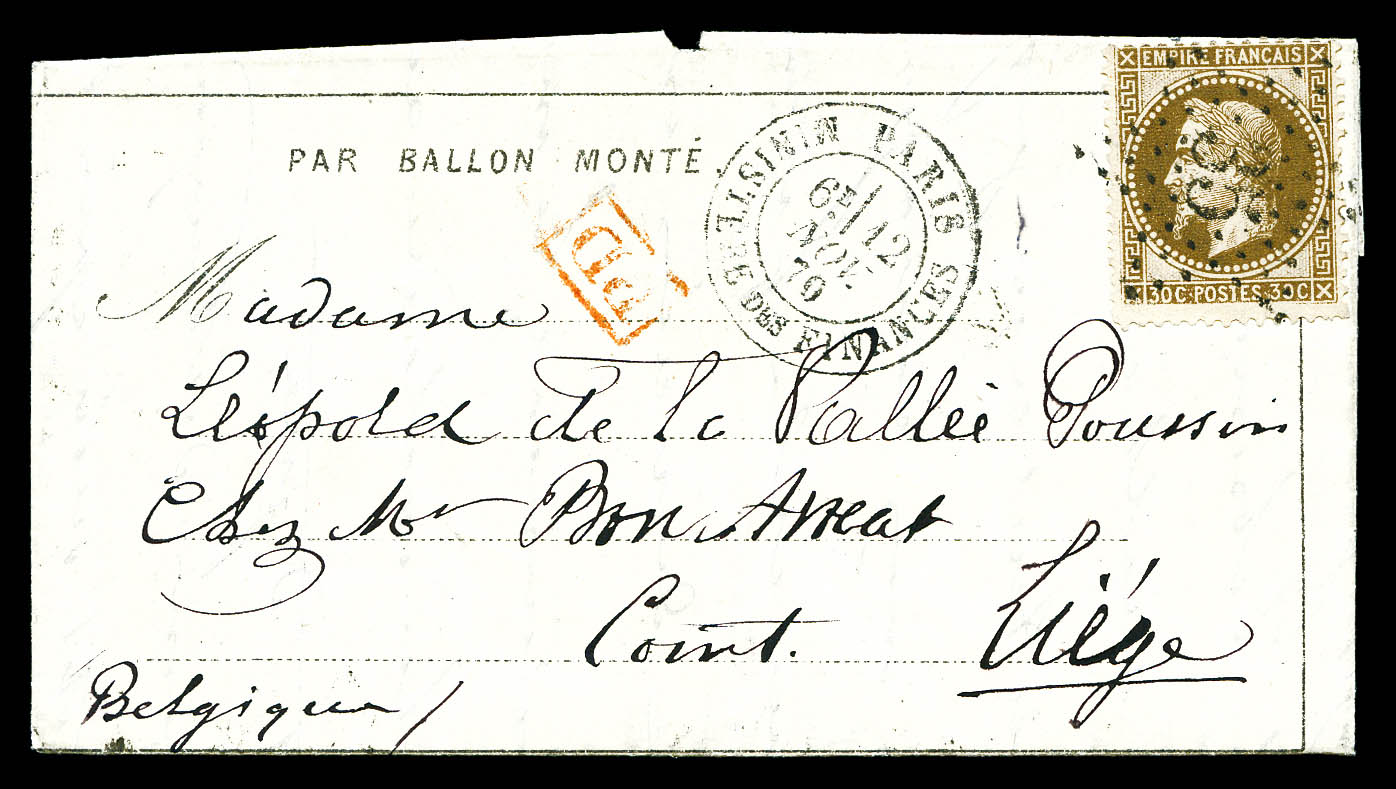 EMPIRE FRANCAIS
30C POSTES 30C
PAR BALLON MONTÉ
PARIS MINISTÈRE DES FINANCES
6E/12
NOV.
70
PD
Madame
Léopold de la Vallée Poussin
Chez Mr
Coint. Liége
Belgique